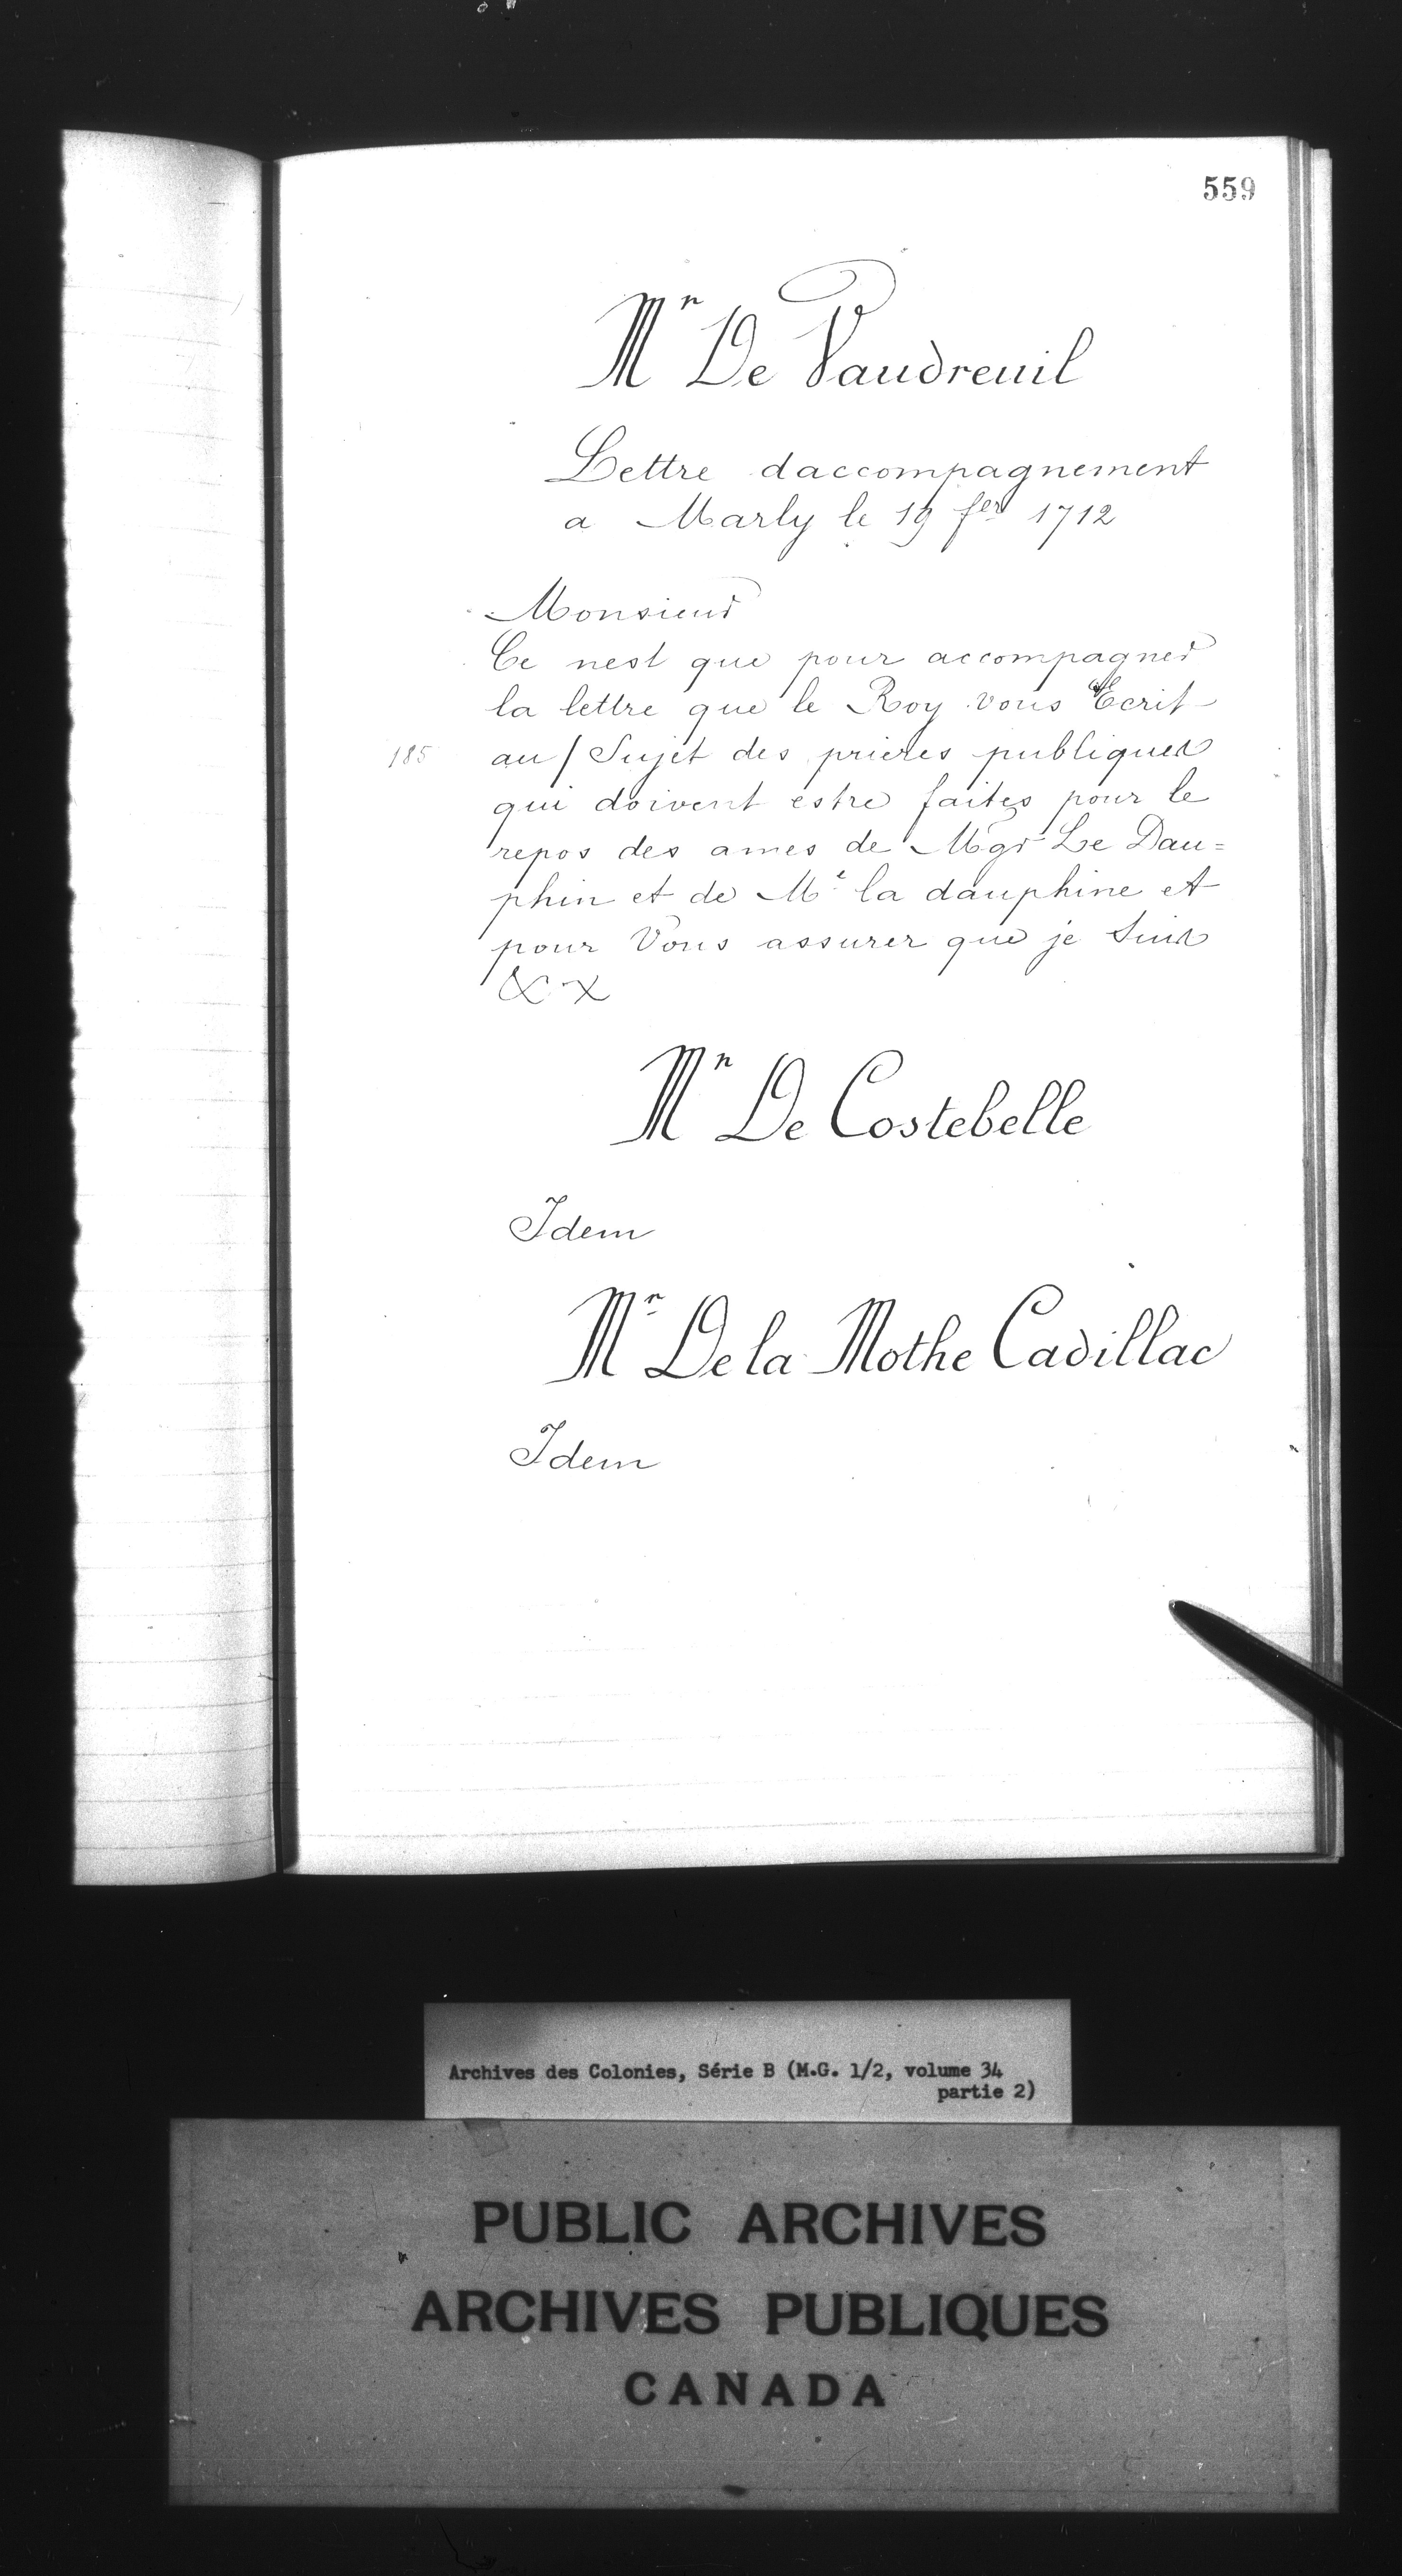 559
Mr De Vaudreuil
Lettre daccompagnement
a Marly le 19 fer 1712
Monsieur
Ce nest que pour accompagner
la lettre que le Roy vous Ecrit
185 au / Sujet des prieres publiques
qui doivent estre faites pour le
repos des ames de Mgr Le Dau=
phin et de Me la dauphine et
pour Vous assurer que je suis
&x
Mr De Costebelle
Idem
Mr De la Mothe Cadillac
Idem
Archives des Colonies, Série B (M.G. 1/2, volume 34
partie 2)
PUBLIC ARCHIVES
ARCHIVES PUBLIQUES
CANADA